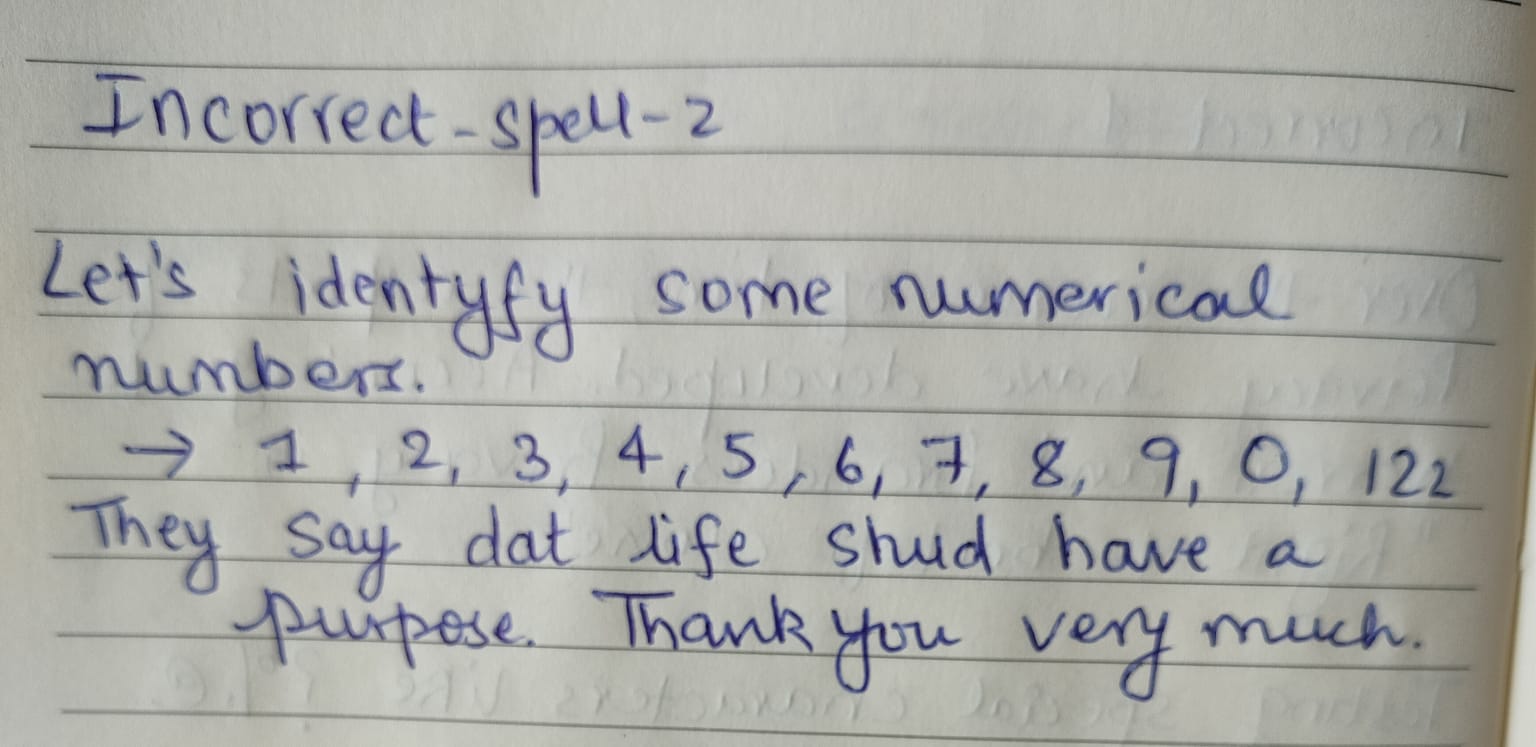 Incorrect-spell-2
Let's identyfy some numerical
numbers.
→ 1, 2, 3, 4, 5, 6, 7, 8, 9, 0, 122
They say dat life shud have a
purpose. Thank you very much.